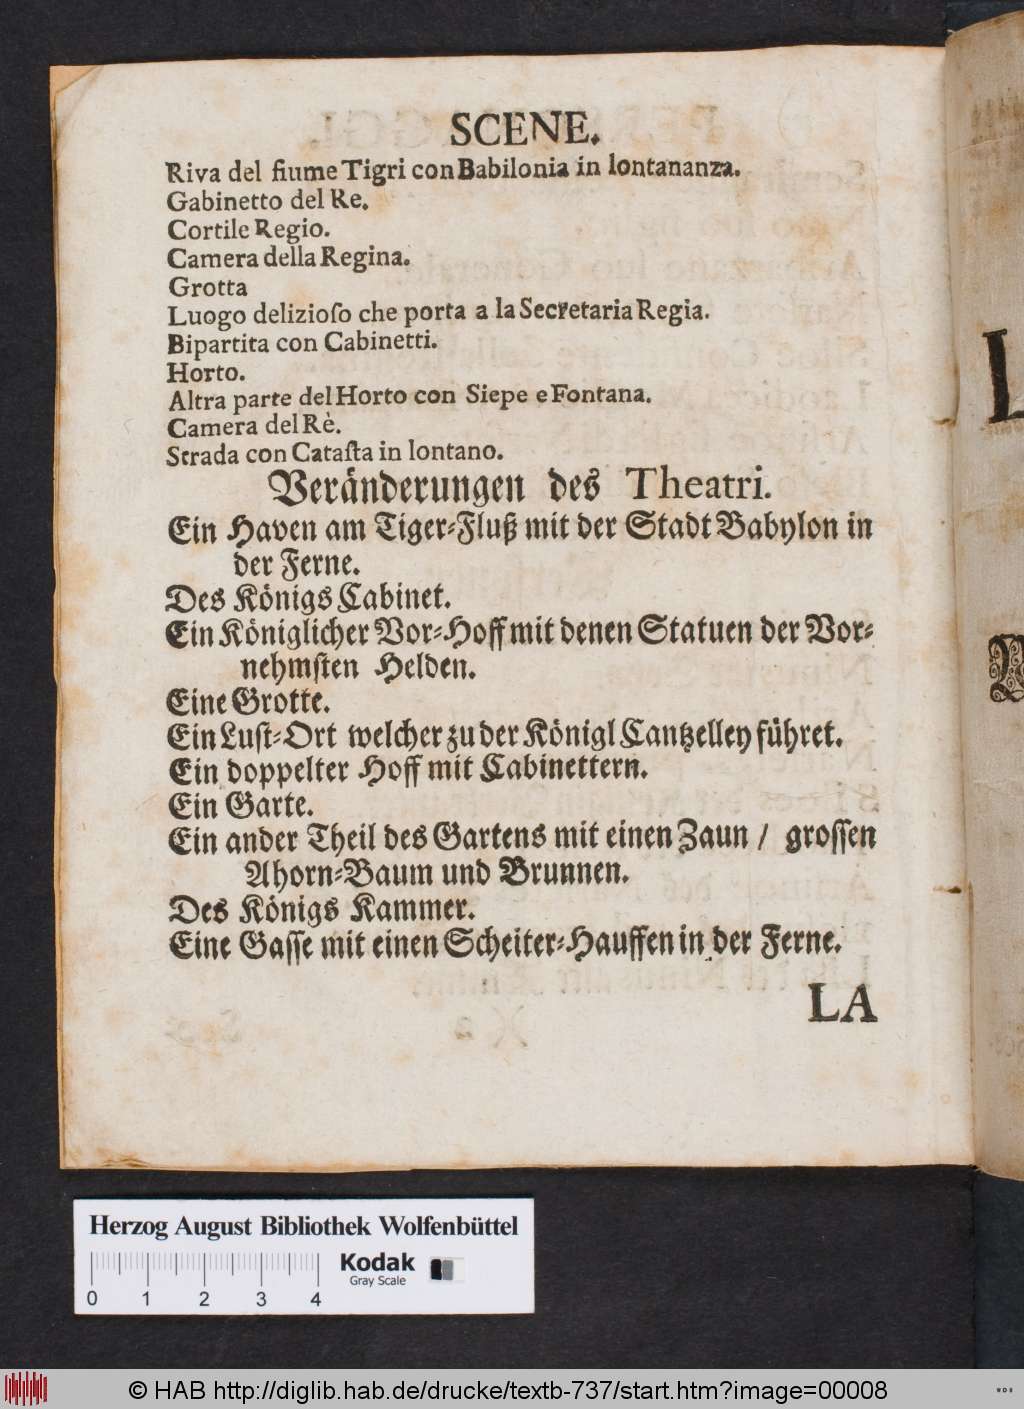 SCENE.
Riva del fiume Tigri con Babilonia in lontananza.
Gabinetto del Re.
Cortile Regio.
Camera della Regina.
Grotta
Luogo delizioſo che porta a la Secretaria Regia.
Bipartita con Cabinetti.
Horto.
Altra parte del Horto con Siepe e Fontana.
Camera del Rè.
Strada con Cataſta in lontano.
Veränderungen des Theatri.
Ein Haven am Tiger-Fluß mit der Stadt Babylon in
der Ferne.
Des Königs Cabinet.
Ein Königlicher Vor-Hoff mit denen Statuen der Vor-
nehmſten Helden.
Eine Grotte.
Ein Luſt-Ort welcher zu der Königl Cantzelley führet.
Ein doppelter Hoff mit Cabinettern.
Ein Garte.
Ein ander Theil des Gartens mit einen Zaun / groſſen
Ahorn-Baum und Brunnen.
Des Königs Kammer.
Eine Gaſſe mit einen Scheiter-Hauffen in der Ferne.
LA
Herzog August Bibliothek Wolfenbüttel
Kodak
Gray Scale
0 1 2 3 4
© HAB http://diglib.hab.de/drucke/textb-737/start.htm?image=00008